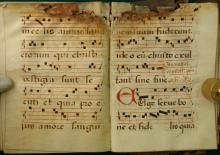 in ce lis anime san
ctorum qui christi
vestigia sunt se
cuti et quia pro e
ius amore sangui
nem suum fuderunt
ideo cū christo exul
tant sine fine
Euge serue bo
ne et fide lis quia